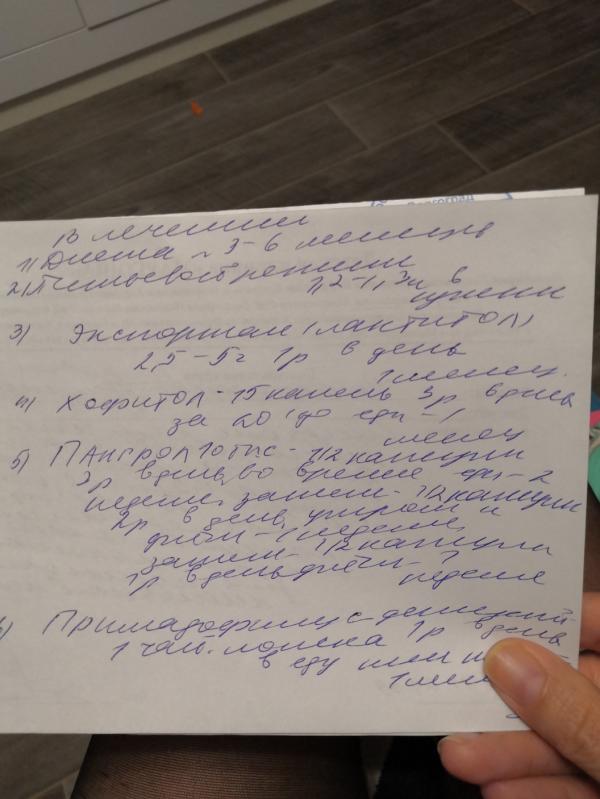 В лечении
1) Диета ~ 3-6 месяцев
2) Питьевой режим
1,2-1,3л в
3) Экспортал (лактитол)
2,5-5г 1р в день
1 месяц.
4) Хофитол - 15 капель 3р в день
за 20' до еды - 1
месяц
5) Панграол 10 тыс - 1/2 капсулы
3р в день во время еды - 2
недели, затем - 1/2 капсулы
2р в день, утром и
днём - 1 неделя,
затем - 1/2 капсулы
1р в день днём - 1
неделя
Примадофилус детский
1 чай. ложка 1р в день
в еду или
1 мес